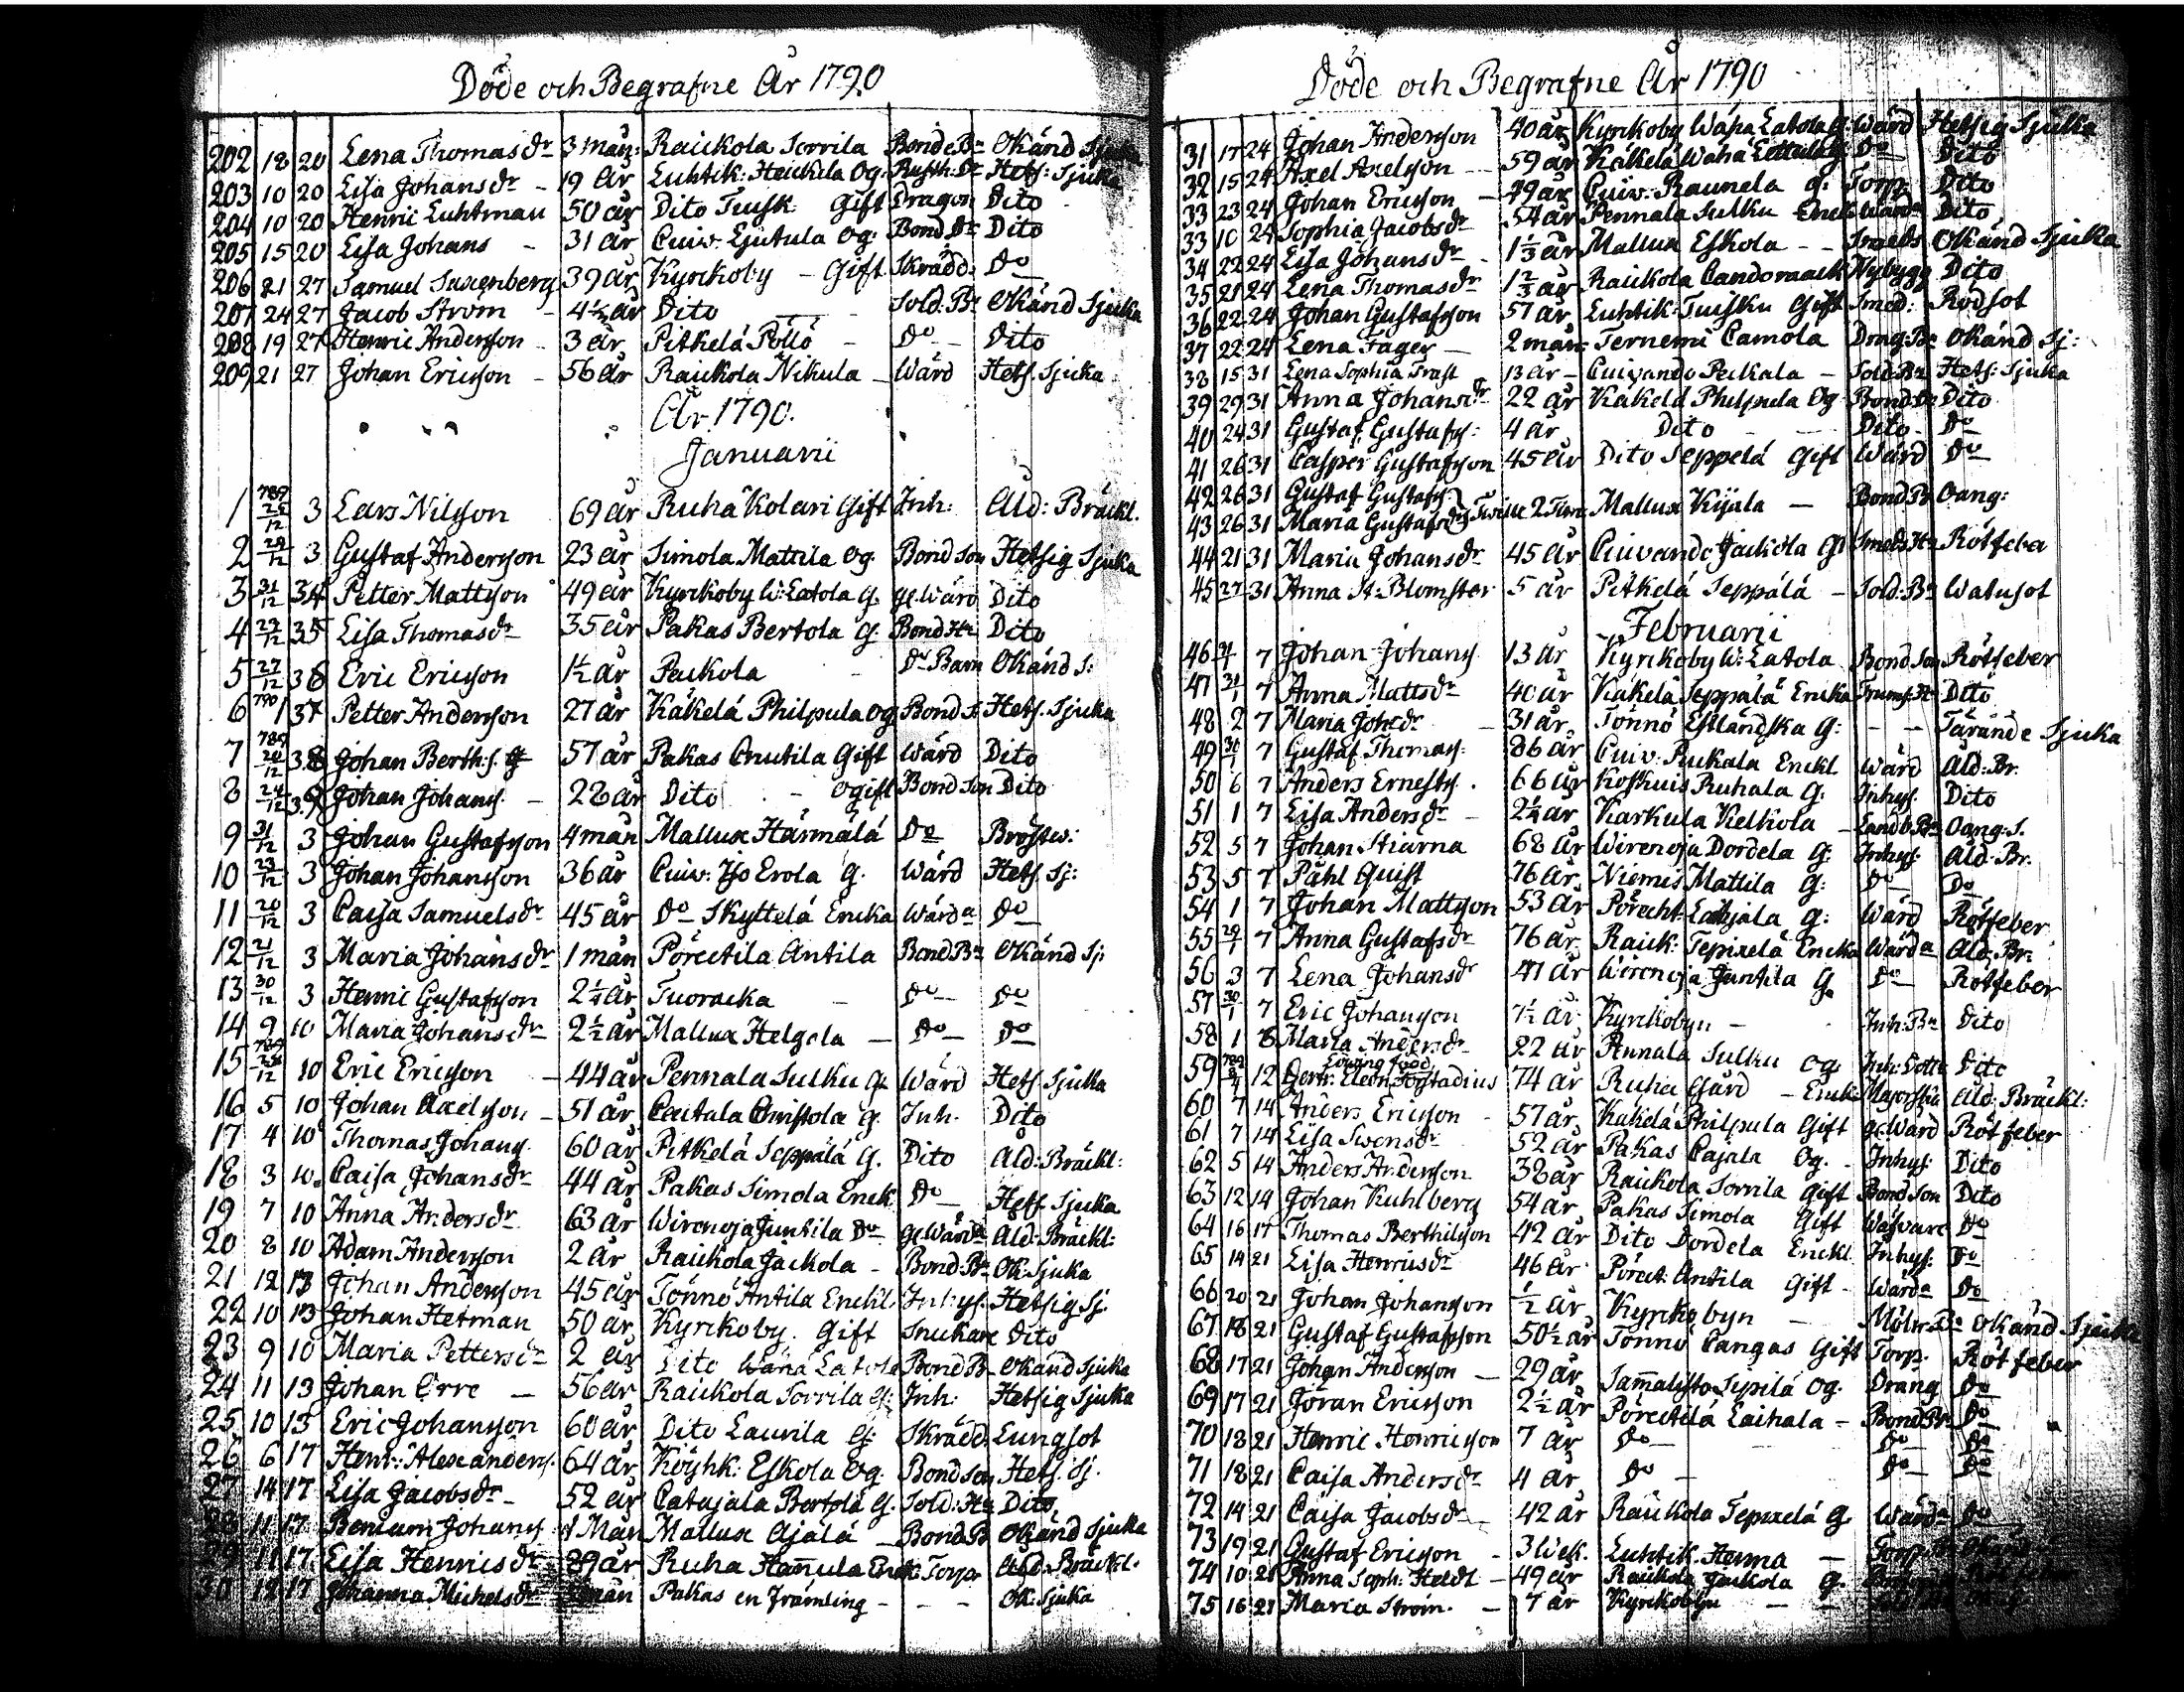 Döde och Begrafne År 1790
202 18 20 Lena Thomasdr 3 mån: Raukola Sorrila Bonde Bn Okänd Sjuka
203 10 20 Lisa Johansdr - 19 år Luhtik: Heickila Og. Rusth: Dr Hets: Sjuka
204 10 20 Henric Luhtman 50 år Dito Tuisk: Gift Dragon Dito
205 15 20 Lisa Johans - 31 år Cuiv. Ejutula og: Bond Dr Dito
206 21 27 Samuel Saxenberg 39 år Kyrckoby - Gift Skrädd: Do
207 24 27 Jacob Ström - 4½ år Dito Sold: Bn Okänd Sjuka
208 19 27 Henric Andersson - 3 år Pitkelä Pöllö - Do - Dito
209 21 27 Johan Ericsson - 56 år Raukola Nikula - Wärd Hets. Sjuka
År 1790.
Januarii
1 789 25/12 3 Lars Nilsson 69 år Ruha Kolari Gift Inh: Åld: Bräckl.
2 29/12 3 Gustaf Andersson 23 år Simola Mattila og. Bond Son Hetsig Sjuka
3 31/12 3 Petter Mattsson 49 år Kyrckoby W: Latola G. gl. Wärd Dito
4 29/12 3 Lisa Thomasdr 35 år Pakas Bertola G. Bond Hu Dito
5 27/12 3 Eric Ericsson 1½ år Peukola Do Barn Okänd S:
6 790 1 3 Petter Andersson 27 år Käkelä Philpula og Bond S. Hets. Sjuka
7 789 20/12 3 Johan Berth:s. 57 år Pakas Cnutila Gift Wärd Dito
8 24/12 3 Johan Johans. - 28 år Dito - ogift Bond Son Dito
9 31/12 3 Johan Gustafsson 4 mån Mallux Härmälä Do Bröstw:
10 23/12 3 Johan Johansson 36 år Cuiv: Iso Erola G. Wärd Hets. Sj:
11 20/12 3 Caisa Samuelsdr 45 år Do Skyttelä Encka Wärda Do
12 21/12 3 Maria Johansdr 1 mån Pörectila Antila Bond Bn Okänd Sj:
13 30/12 3 Henric Gustafsson 2¼ år Tuoracka - Do Do
14 9 10 Maria Johansdr 2½ år Mallux Helgola - Do Do
15 789 28/12 10 Eric Ericsson - 44 år Pennala Sulku G. Wärd Hets. Sjuka
16 5 10 Johan Axelsson - 51 år Catala Christola G. Inh. Dito
17 4 10 Thomas Johans. 60 år Pitkelä Seppälä G. Dito Åld: Bräckl:
18 3 10 Caisa Johansdr 44 år Pakas Simola Enck. Do Hets Sjuka
19 7 10 Anna Andersdr 63 år Wirenoja Juntila Do gl. Wärda Åld: Bräckl:
20 8 10 Adam Andersson 2 år Raukola Jackola - Bond: Bn Ok: Sjuka
21 12 13 Johan Andersson 45 år Tönnö Antila Enckl. Inhys: Hetsig Sj.
22 10 13 Johan Hetman 50 år Kyrckoby. Gift Snickare Dito
23 9 10 Maria Pettersdr 2 år Dito Wähä Latola Bond B. Okänd Sjuka
24 11 13 Johan Orre - 56 år Raukola Sorrila G: Inh: Hetsig Sjuka
25 10 13 Eric Johansson 60 år Dito Laurila G: Skrädd. Lungsot
26 6 17 Henr: Alexanders. 64 år Köyhk: Eskola og. Bond Son Hets. Sj.
27 14 17 Lisa Jacobsdr - 52 år Catajala Bertola G. Sold: Hu Dito
28 11 17 Johans. Mån Mallux Äjälä - Bond: B Okänd Sjuka
29 11 17 Lisa Henricsdr 89 år Ruha Hannula Enck: Torp Åld: Bräckl.
30 12 17 Johanna Michelsdr mån Pakas en främling - - - Ok: Sjuka
Döde och Begrafne År 1790
31 17 24 Johan Andersson 40 år Kyrckoby Wähä Latola G. Wärd Hetsig Sjuka
32 15 24 Axel Axelsson - 59 år Käkelä Wähä Do Dito
33 23 24 Johan Ericsson - 49 år Cuiv: Raunela G: Torp. Dito
33 10 24 Sophia Jacobsdr 54 år Pennala Sulku Enck: Wärda Dito
34 22 24 Lisa Johansdr - 1⅔ år Mallux Eskola - - Okänd Sjuka
35 21 24 Lena Thomasdr 1⅔ år Raukola Nybygg Dito
36 22 24 Johan Gustafsson 57 år Luhtik: Tuisku Gift Smed: Rödsot
37 22 24 Lena Fager - 2 mån: Ternemi Camola Drag: Bn Okänd Sj:
38 15 31 Lena Sophia Frast 13 år - Cuivando Peckala - Sold: Bn Hets: Sjuka
39 29 31 Anna Johansdr 22 år Käkelä Philpula Og Bond Dr Dito
40 24 31 Gustaf Gustafs: 4 år Dito Dito Do
41 26 31 Casper Gustafsson 45 år Dito Seppelä Gift Wärd Do
42 26 31 Gustaf Gustafs.
43 26 31 Maria Gustafsdr Mallux Kijala - Bond Bn Oang:
44 21 31 Maria Johansdr 45 år Cuivando Jackola G: Smeds Hu Rötfeber
45 27 31 Anna St: Blomster 5 år Pitkelä Seppälä - Sold: Bn Watusot
Februarii
46 7 Johan Johans. 13 år Kyrckoby W: Latola Bond Son Rötfeber
47 31/1 7 Anna Mattsdr 40 år Käkelä Seppälä Encka Dito
48 2 7 Maria Johsdr - 31 år Tönnö Estländska G: - - Tärande Sjuka
49 30/1 7 Gustaf Thomas: 86 år Cuiv: Peckala Enckl Wärd Åld: Br.
50 6 7 Anders Ernests. 66 år Koskuis Ruhala G: Inhys. Dito
51 1 7 Lisa Andersdr - 2¼ år Karkula Kelkola - Landb. Bn Oang: S.
52 5 7 Johan Stiärna 68 år Wirenoja Dordela G: Inhys. Åld: Br.
53 5 7 Påhl Quist 76 år Niemis Mattila G: Do Do
54 1 7 Johan Mattsson 53 år Pörecht: G: Wärd Rötfeber
55 29/1 7 Anna Gustafsdr 76 år Rauk: Tepixelä Encka Wärda Åld: Br:
56 3 7 Lena Johansdr 41 år Wirenoja Juntila G. Do Rötfeber
57 30/1 7 Eric Johansson 7½ år Kyrckobyn - Inh: Bn Dito
58 1 8 Maria Andersdr 22 år Pennala Sulku Og. Inh: Dotter Dito
59 12 Gertr: Eleon. 74 år Ruha Gård - Enck: Majorska Åld: Bräckl:
60 7 14 Anders Ericsson - 57 år Käkelä Philpula Gift gl: Wärd Rötfeber
61 7 14 Lisa Swensdr 52 år Pakas Cajala Og. - Inhys: Dito
62 5 14 Anders Andersson 38 år Raukola Sorrila Gift Bond Son Dito
63 12 14 Johan Kuhlberg 54 år Pakas Simola Gift Wäfvare Do
64 16 17 Thomas Berthilsson 42 år Dito Dordela Enckl. Inhys: Do
65 14 21 Lisa Henricsdr 46 år Pörect: Antila Gift - Wärda Do
66 20 21 Johan Johansson ½ år Kyrckobyn - Mölw: Bn Okänd Sjuka
67 18 21 Gustaf Gustafsson 50½ år Tönnö Cangas Gift Torp. Rötfeber
68 17 21 Johan Andersson - 29 år Sammalisto Sepilä Og. Dräng Do
69 17 21 Jöran Ericsson 2½ år Pörectilä Laihala - Bond Bn Do
70 18 21 Henric Henricsson 7 år Do - Do Do
71 18 21 Caisa Andersdr 4 år Do - Do Do
72 14 21 Caisa Jacobsdr - 42 år Raukola Tepixelä G. Wärda Do
73 19 21 Gustaf Ericsson - 3 Wek. Luhtik. Henna -
74 10 21 Anna Soph: Heldt - 49 år Raukola Jackola G.
75 16 21 Maria Ström. - 7 år Kyrckobyn - -